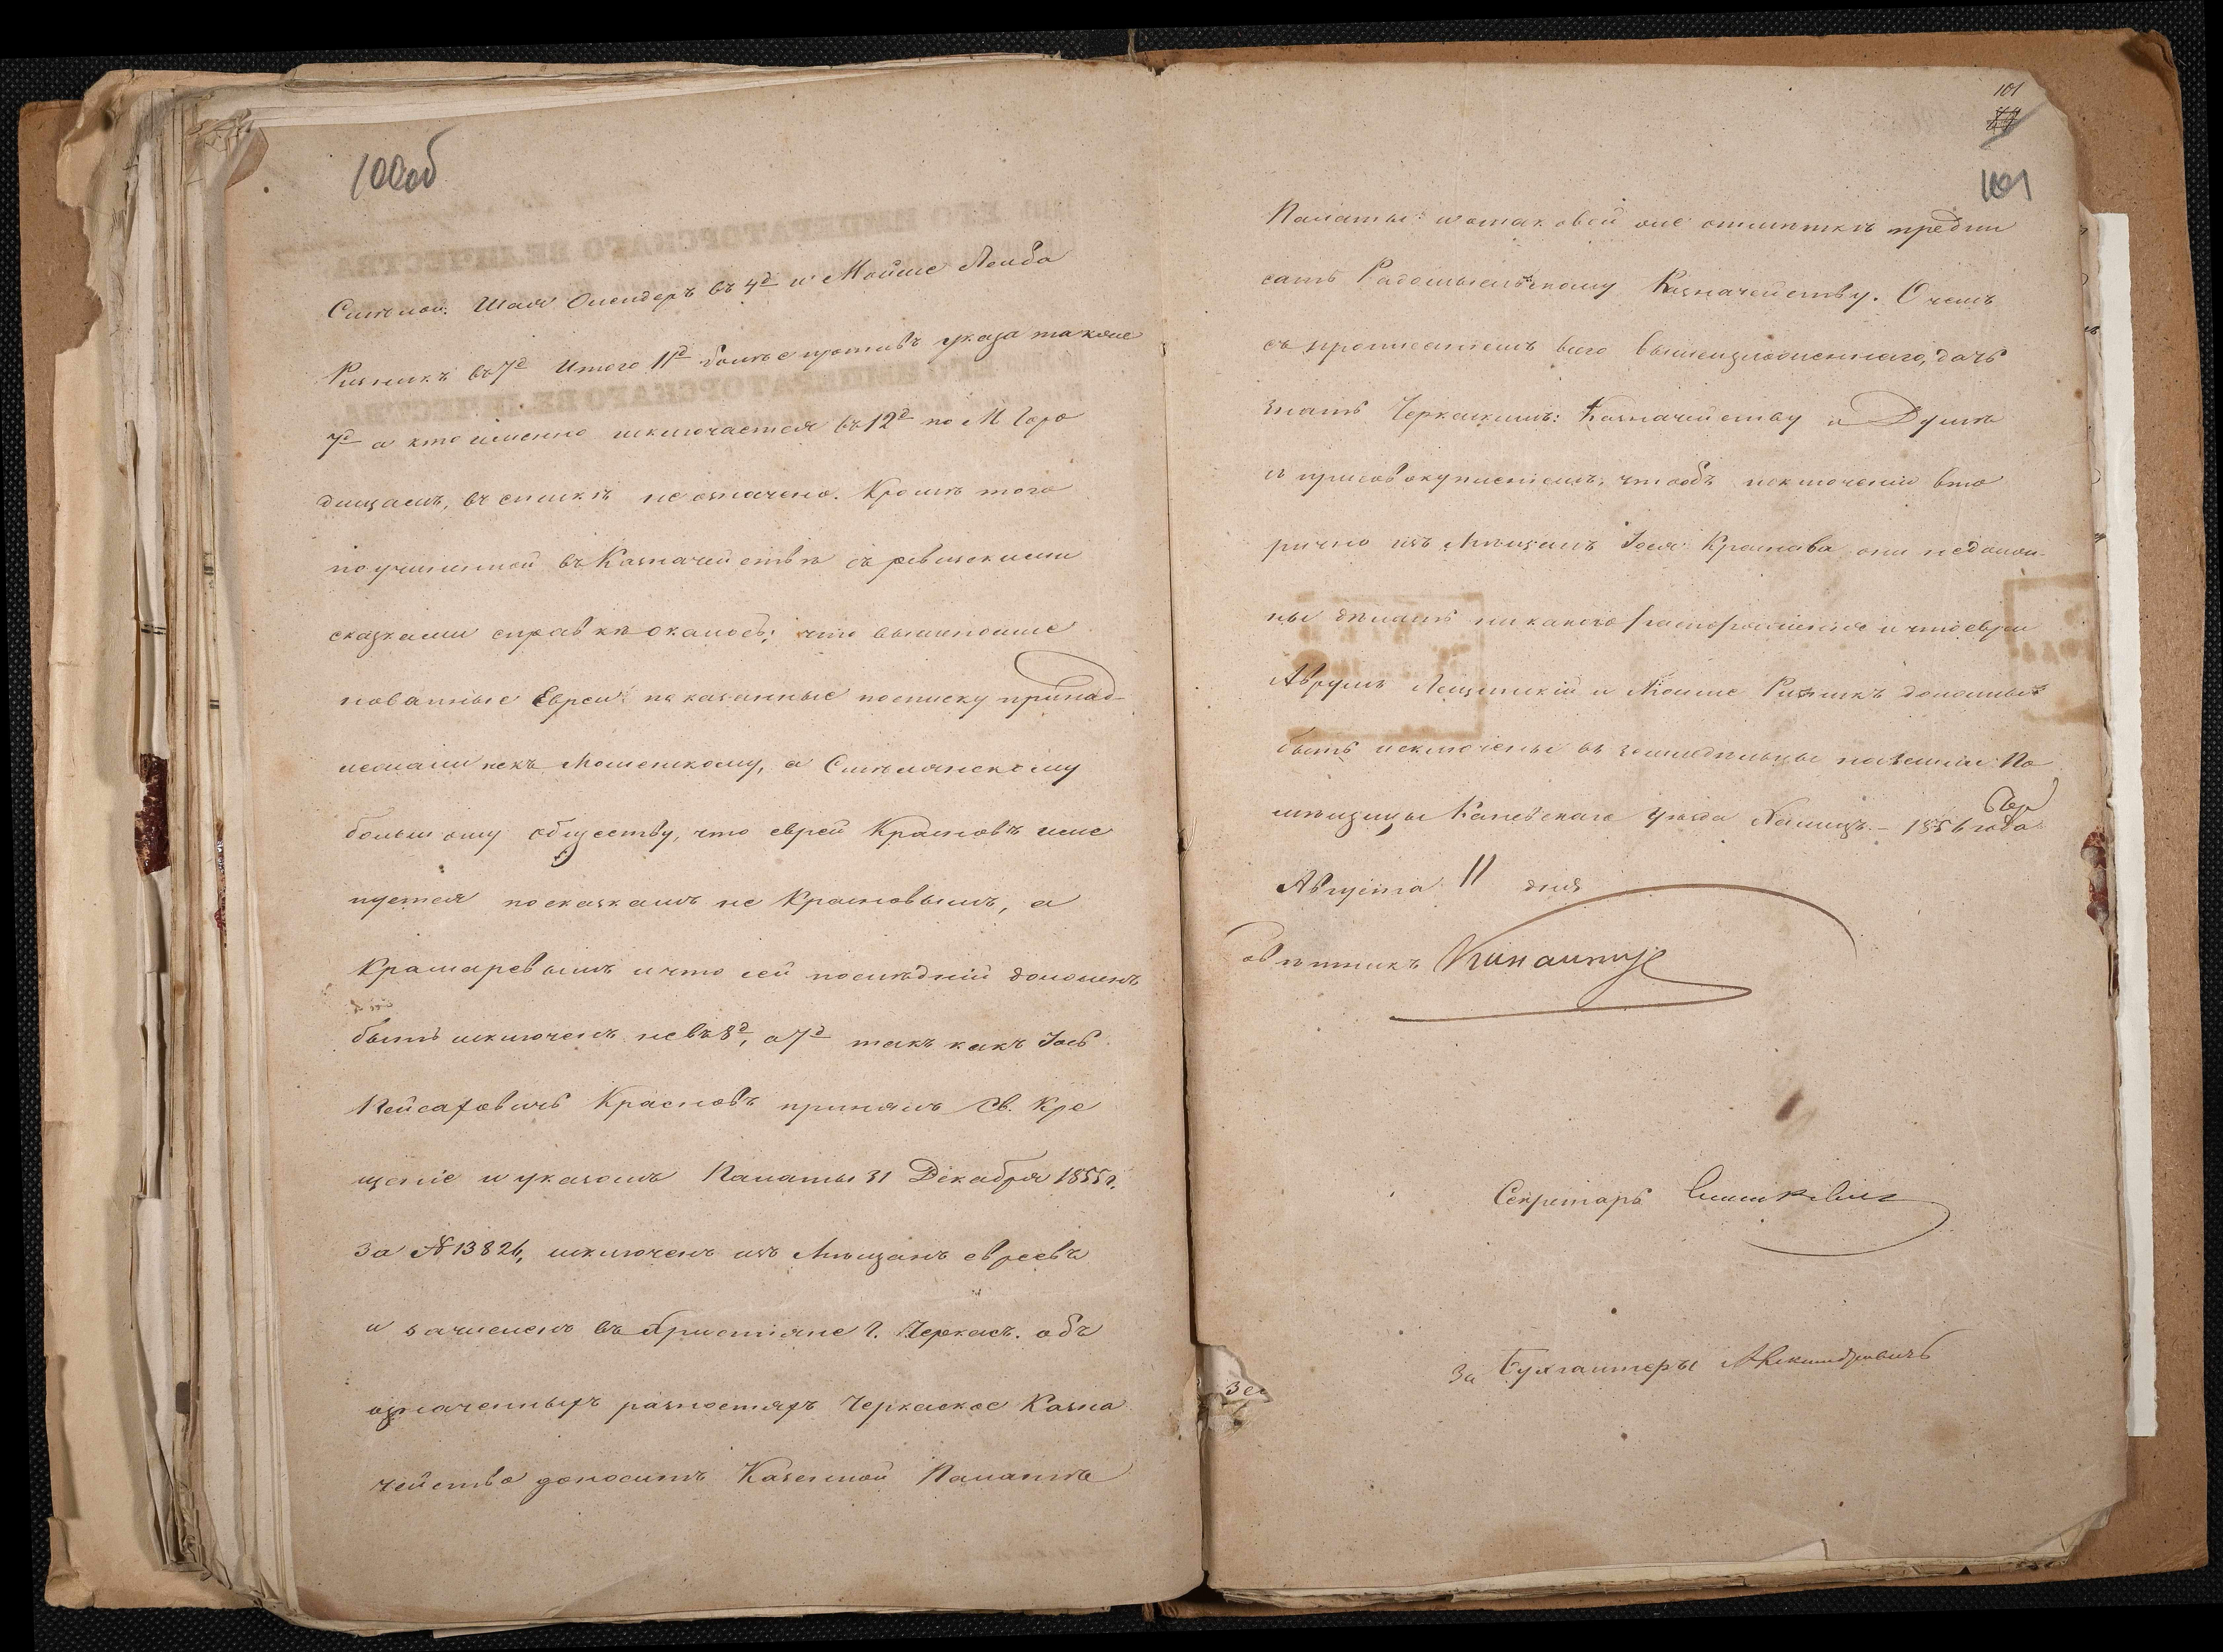 100об
Смѣлой: Шая Олендеръ въ 4д и Мойше Лейба
Ризникъ въ 7д Итого 11д болѣе противъ указа также
7д а кто именно исключается въ 12д по М Горо
дищамъ, въ спискѣ не означено. Кромѣ того
по учиненной въ Казначействѣ съ ревизскими
сказками справкѣ оказалось: что вышепоиме
нованные Евреи: показанные по списку принад-
лежали не къ Мошенскому, а Смѣлянскому
большому обществу, что еврей Красновъ име
нуется по сказкамъ не Красновымъ, а
Крамаревымъ и что сей послѣдній долженъ
быть исключенъ не въ 8д, а 7д такъ какъ Іось
Пейсаховичъ Красновъ принялъ Св. Кре
щеніе и указомъ Палаты 31 Декабря 1855 г.
За № 13826, исключенъ изъ Мѣщанъ евреевъ
и зачисленъ въ христіане г. Черкасъ. объ
означенныхъ разностяхъ Черкаское Казна
чейство доноситъ Казенной Палатѣ
101
101
Палаты: и о таковой же отмѣткѣ предпи
сать Радомысльскому Казначейству. О чемъ
съ прописаніемъ всего вышеизложеннаго, дать
знать Черкаскимъ: Казначейству и Думѣ
съ присовокупленіемъ, чтобъ исключеніи вто
рично изъ Мѣщанъ Іося Краснова они не долж-
ны дѣлать никакого распоряженія и что евреи
Аврумъ Лещинскій и Мойше Ризникъ должны
быть исключены въ земледѣльцы на земли По
мѣщицы Каневскаго уѣзда 1856 года
Августа 11 дня
Совѣтникъ
Секретарь
За Бухгалтера Александровичъ